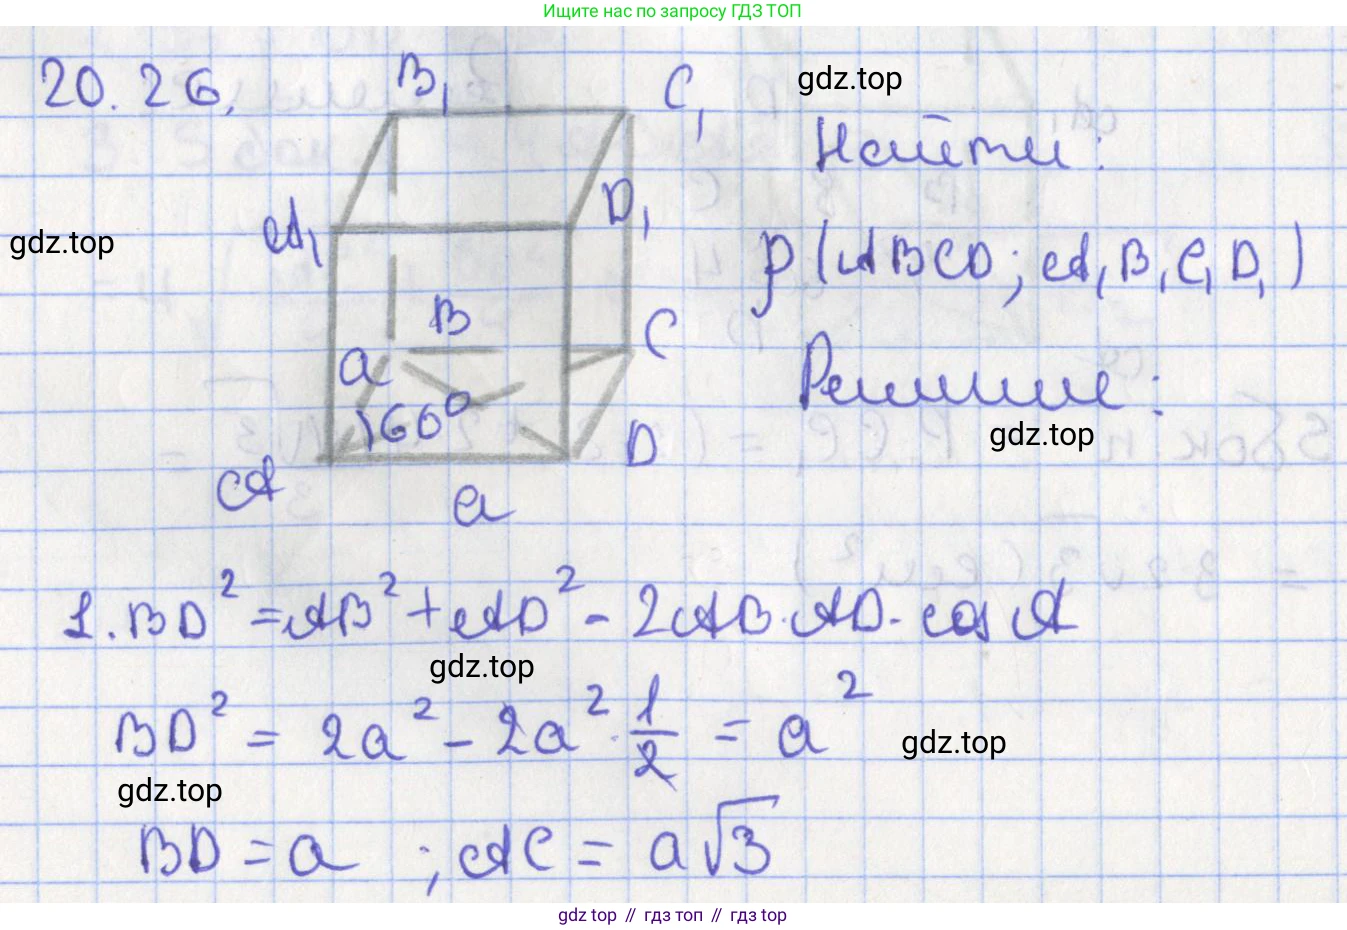 Ищите нас по запросу ГДЗ ТОП
20.26.
B₁
C₁
gdz.top
Найти:
A₁
D₁
gdz.top
ρ(ABCD; A₁B₁C₁D₁)
B
C
a
Решение:
)60°
gdz.top
D
A
a
1. BD² = AB² + AD² - 2AB·AD·cos A
gdz.top
BD² = 2a² - 2a² · 1/2 = a²
gdz.top
gdz.top
BD = a ; AC = a√3
gdz top // гдз топ // гдз top